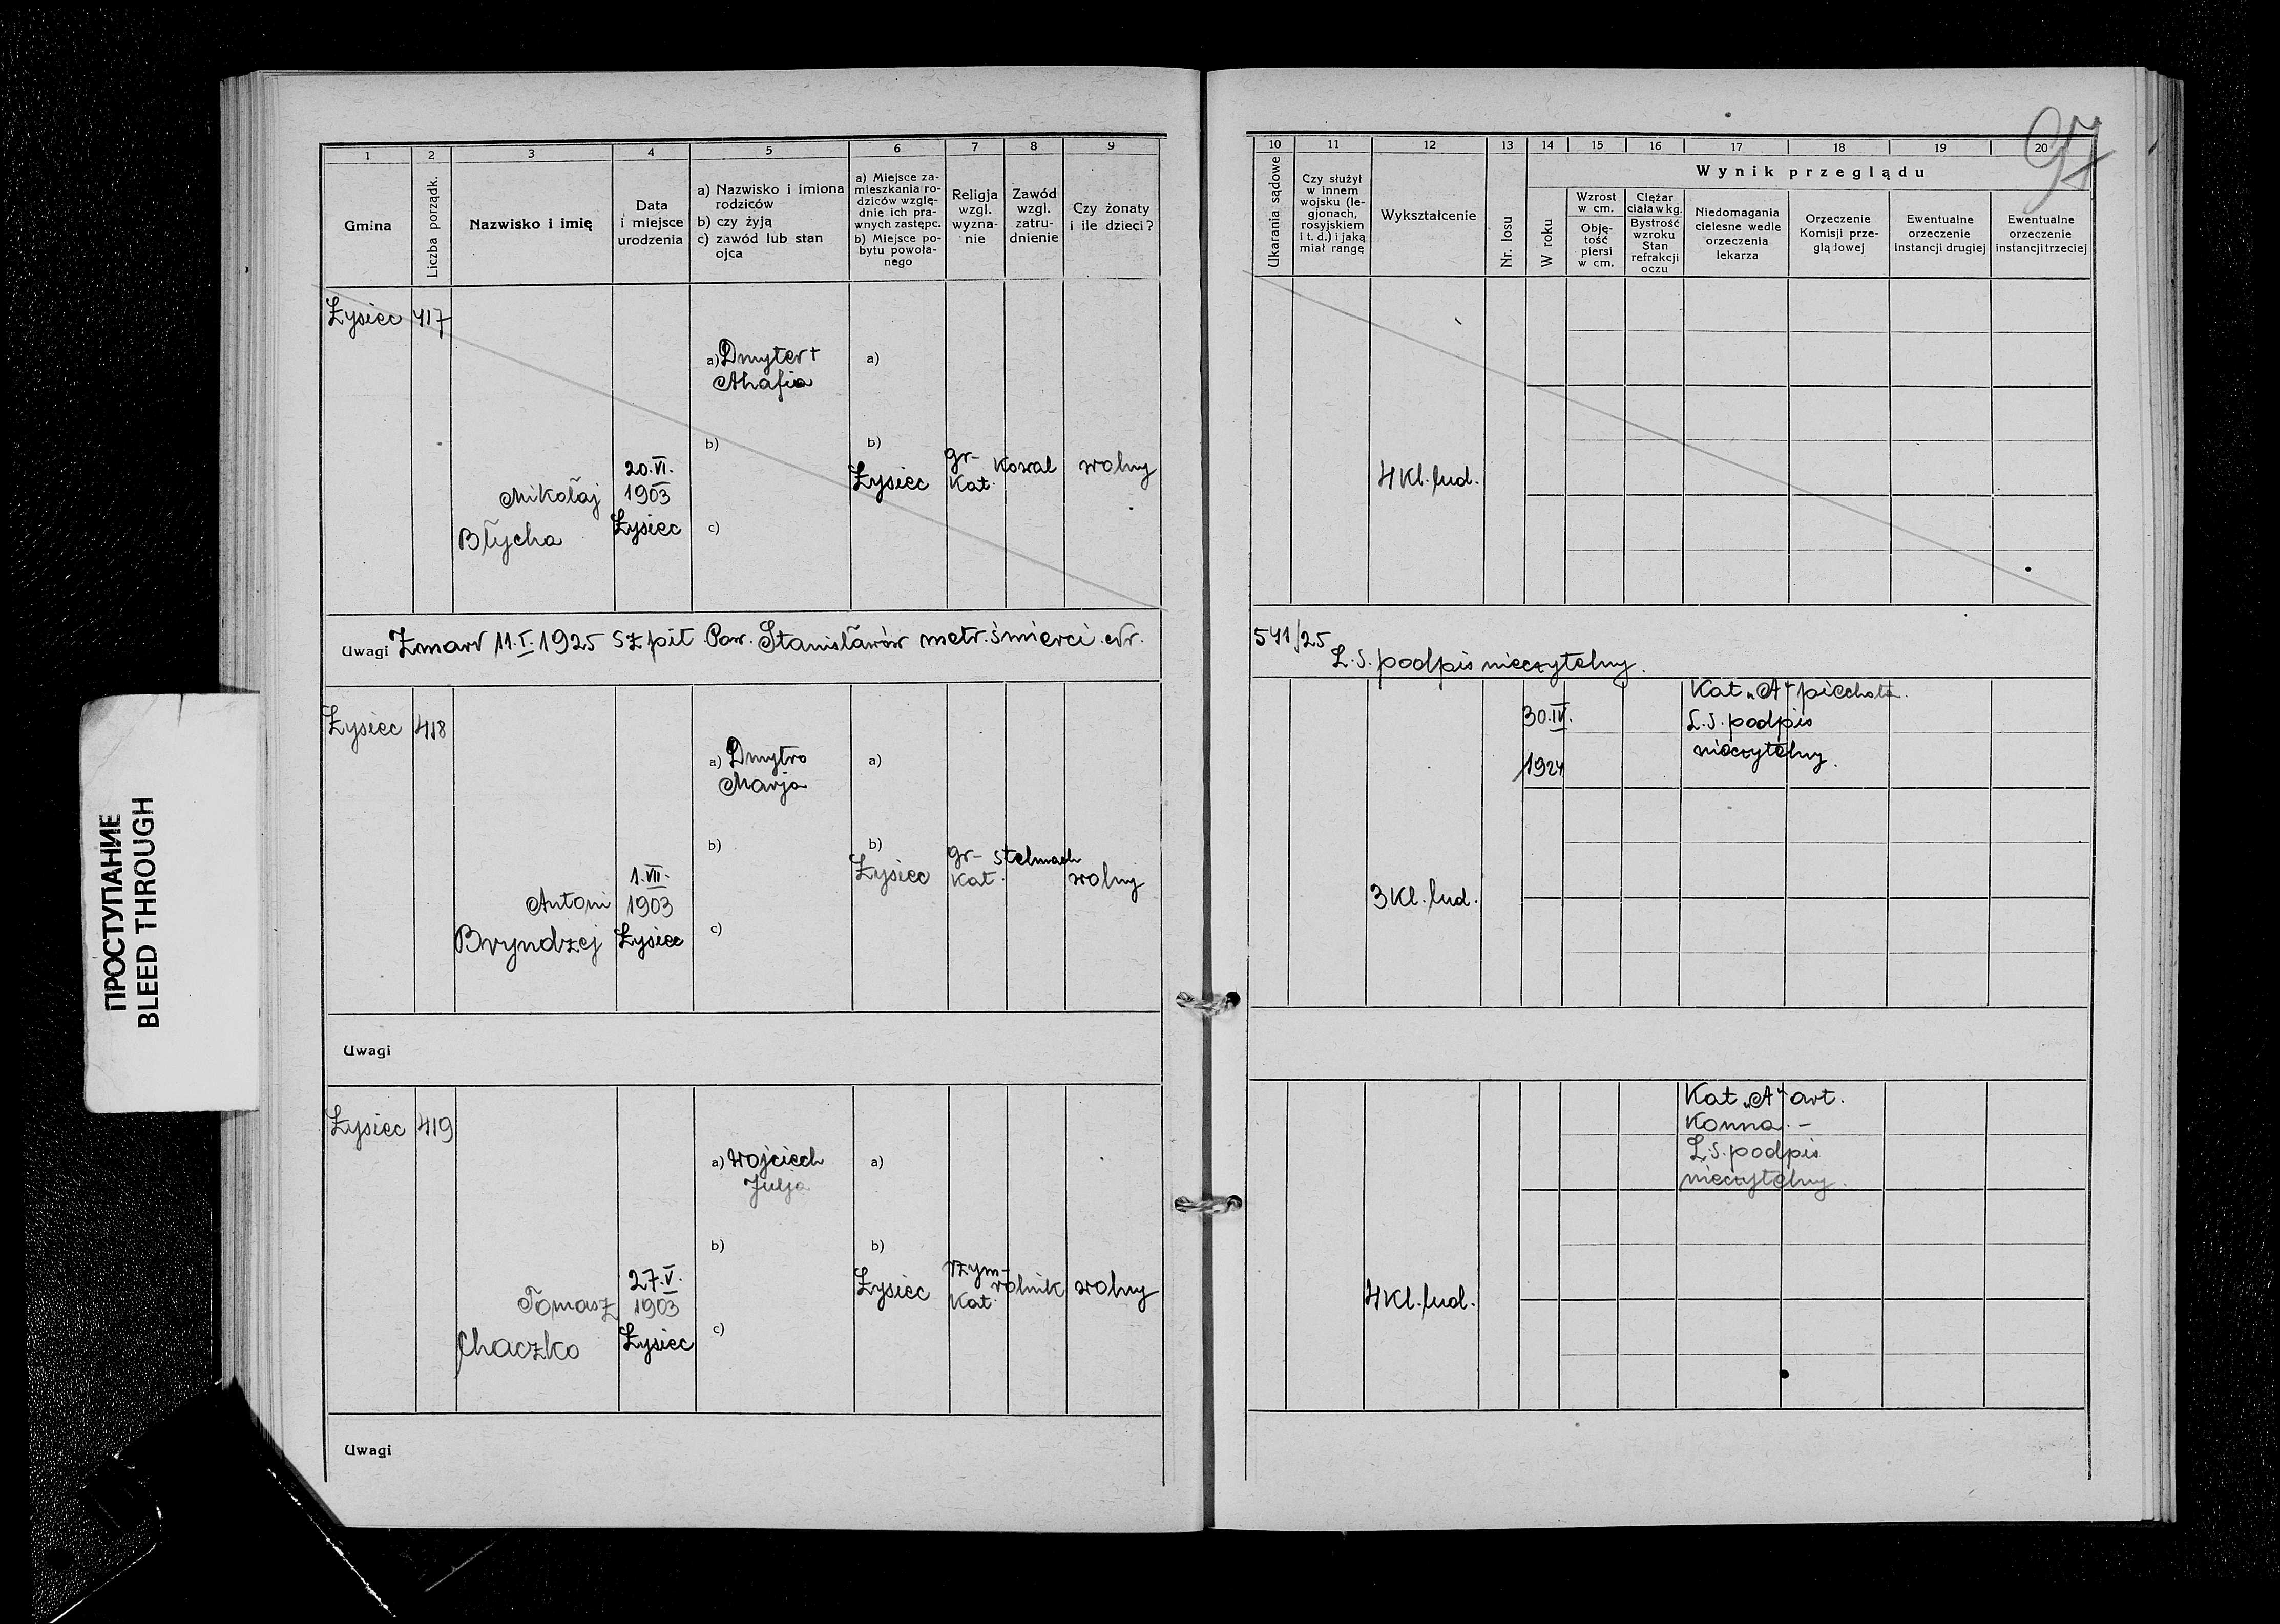 97
1 2 3 4 5 6 7 8 9
Gmina
Liczba porządk.
Nazwisko i imię
Data
i miejsce
urodzenia
a) Nazwisko i imiona
rodziców
b) czy żyją
c) zawód lub stan
ojca
a) Miejsce za-
mieszkania ro-
dziców wzglę-
dnie ich pra-
wnych zastępc.
b) Miejsce po-
bytu powoła-
nego
Religja
wzgl.
wyzna-
nie
Zawód
wzgl.
zatru-
dnienie
Czy żonaty
i ile dzieci?
10 11 12 13 14 15 16 17 18 19 20
Ukarania sądowe
Czy służył
w innem
wojsku (le-
gjonach,
rosyjskiem
i t. d.) i jaką
miał rangę
Wykształcenie
Nr. losu
Wynik przeglądu
W roku
Wzrost
w cm.
Obję-
tość
piersi
w cm.
Ciężar
ciała w kg.
Bystrość
wzroku
Stan
refrakcji
oczu
Niedomagania
cielesne wedle
orzeczenia
lekarza
Orzeczenie
Komisji prze-
glądowej
Ewentualne
orzeczenie
instancji drugiej
Ewentualne
orzeczenie
instancji trzeciej
Łysiec 417
Mikołaj
Błycha
20.VI.
1903
Łysiec
a) Dmyter +
Ahafia
b)
c)
a)
b)
Łysiec
gr-
Kat.
Kowal
wolny
4 Kl. lud.
Uwagi Zmarł 11.I.1925 Szpit Pow. Stanisławów metr. śmierci Nr.
541/25
L.S. podpis nieczytelny.
Łysiec 418
Antoni
Bryndzej
1.VII.
1903
Łysiec
a) Dmytro
Marja
b)
c)
a)
b)
Łysiec
gr-
Kat.
stelmach
wolny
3 Kl. lud.
30.IV.
1924
Kat „A" piechota.
L.S. podpis
nieczytelny.
Uwagi
Łysiec 419
Tomasz
Chaczko
27.V.
1903
Łysiec
a) Wojciech
Julja
b)
c)
a)
b)
Łysiec
rzym-
Kat.
rolnik
wolny
4 Kl. lud.
Kat „A" art.
Konna. -
L.S. podpis
nieczytelny.
Uwagi
ПРОСТУПАНИЕ
BLEED THROUGH